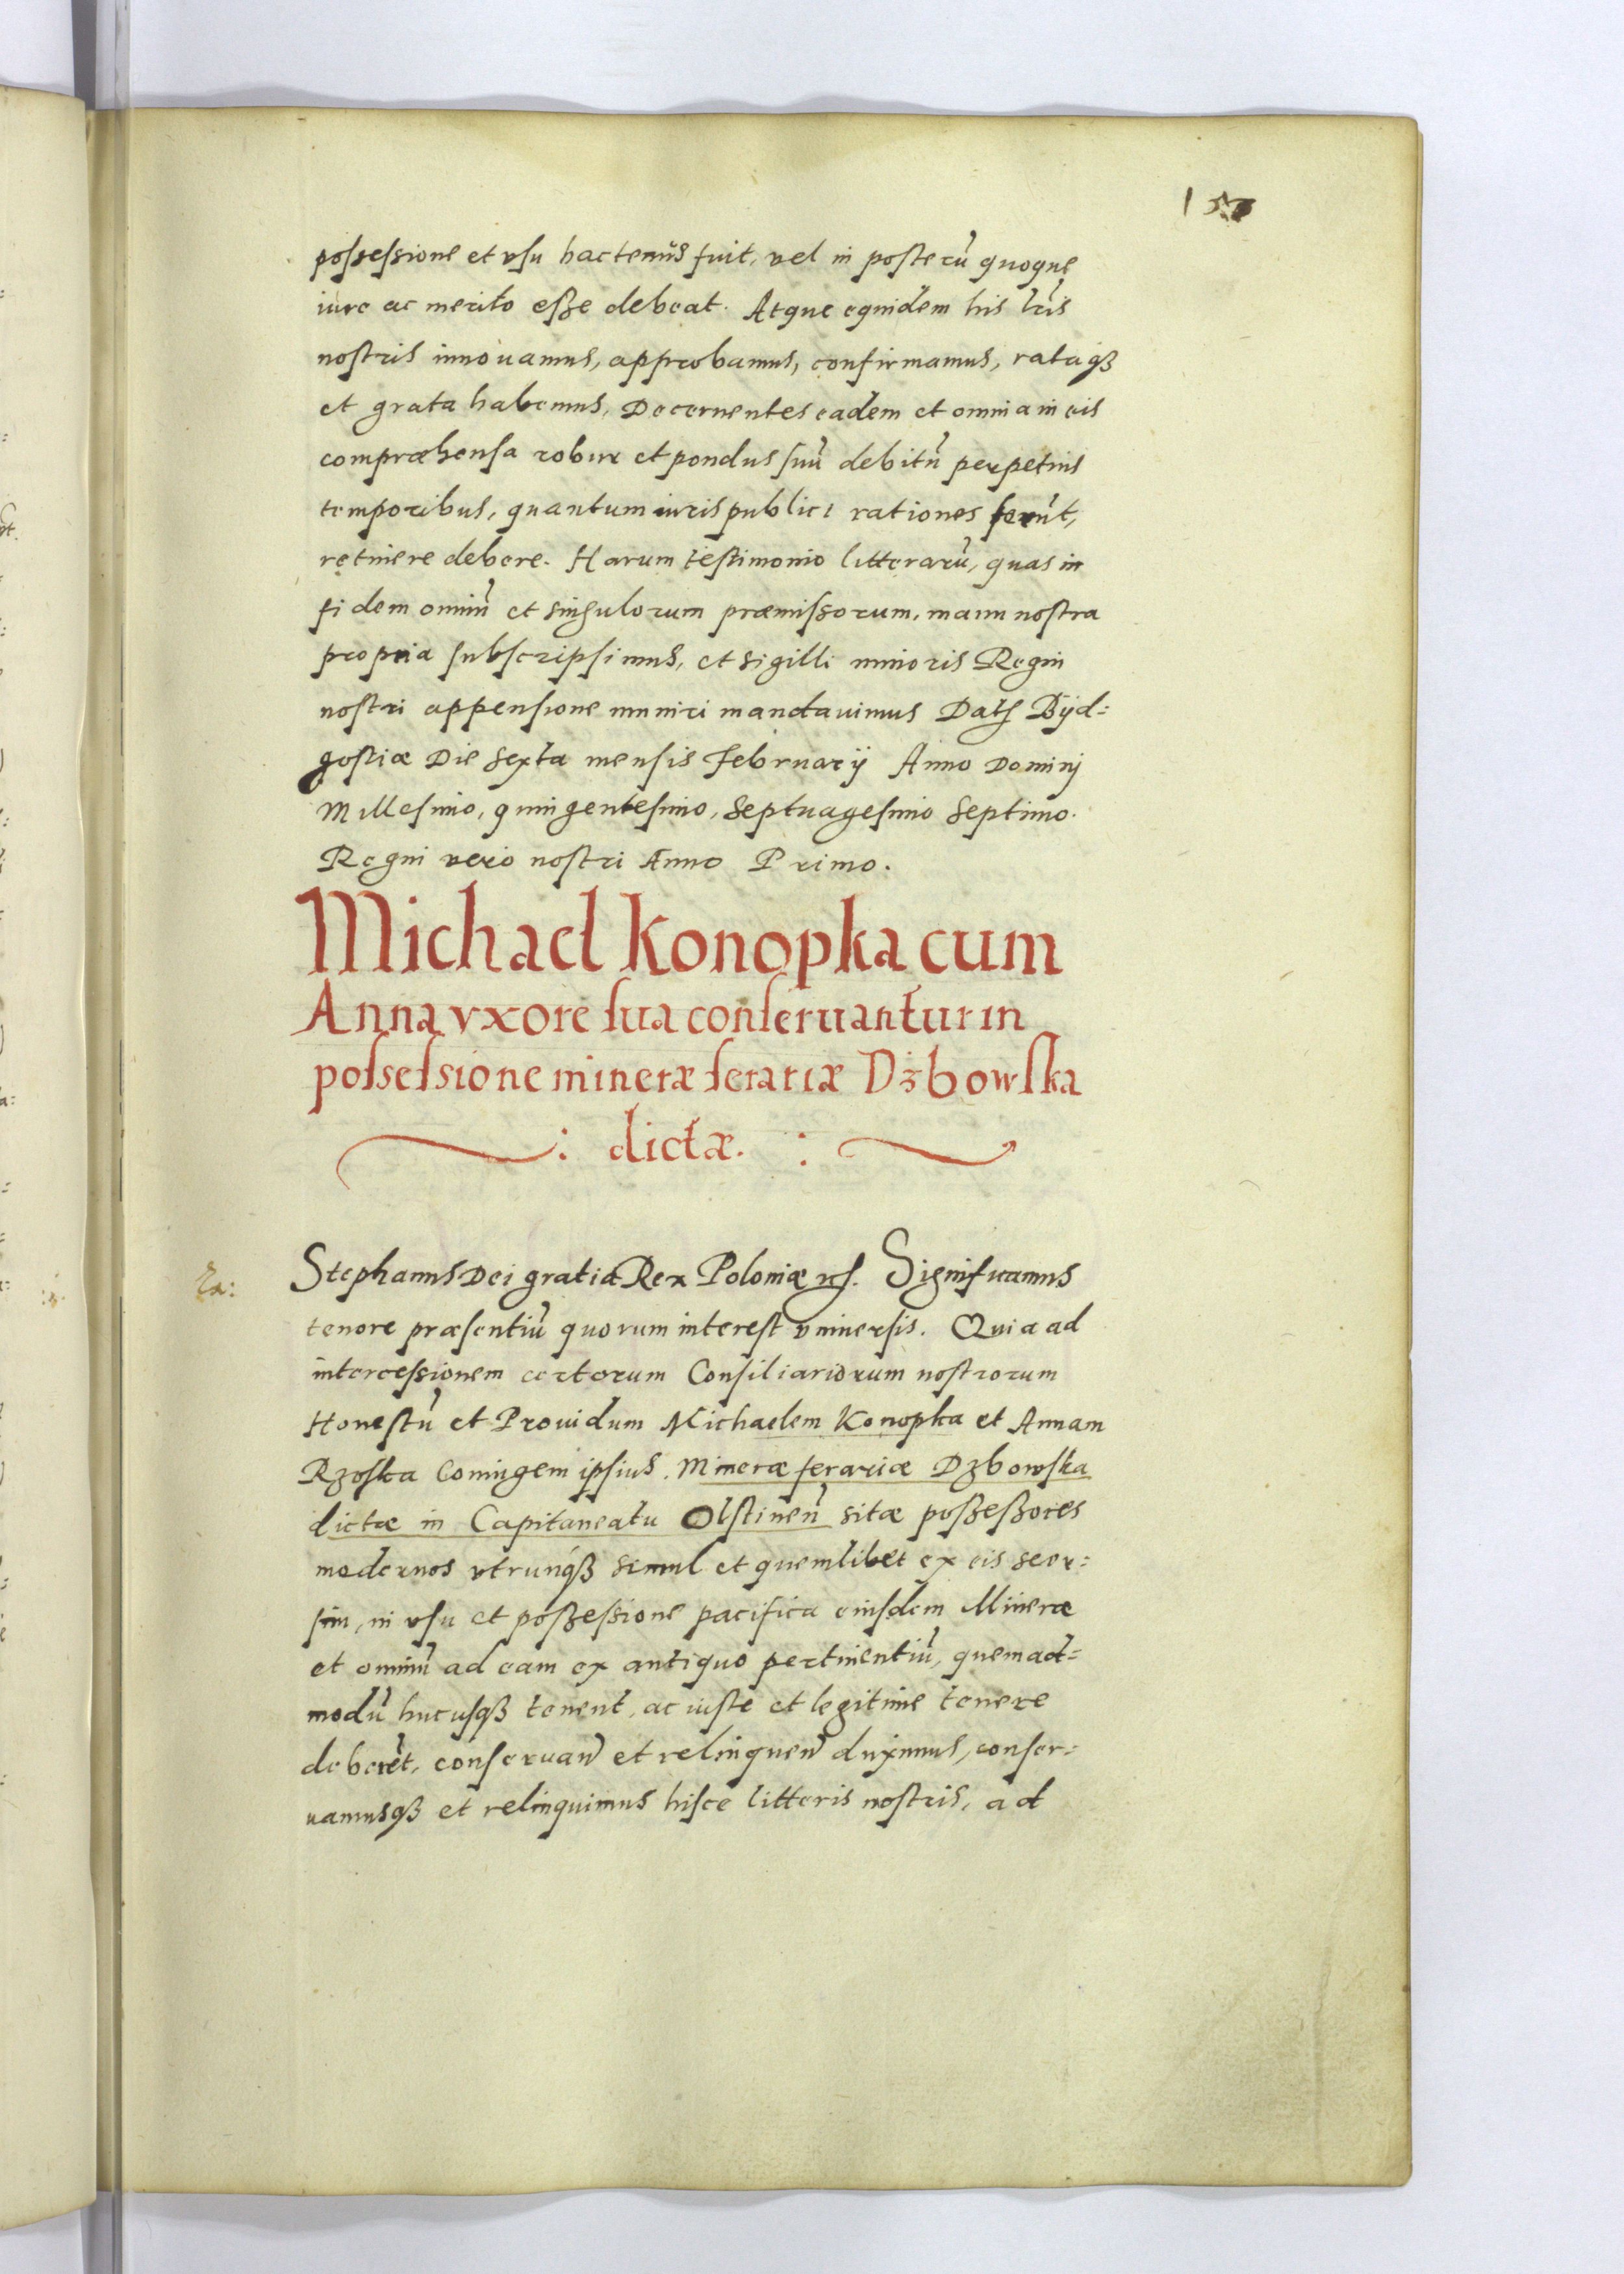 possessione et vsu hactenus fuit, vel in posterũ quoque
iure ac merito esse debeat. Atque equidem his lr̃is
nostris innouamus, approbamus, confirmamus, rataqꝫ
et grata habemus, Decernentes eadem et omnia in eis
compræhensa robur et pondus suũ debitũ perpetuis
temporibus, quantum iuris publici rationes ferũt,
retinere debere. Harum testimonio litterarũ, quas in
fidem omniũ et singulorum præmissorum, manu nostra
propria subscripsimus, et sigilli minoris Regni
nostri appensione muniri mandauimus Dat Byd=
gostiæ Die Sexta mensis Februarij Anno Dominj
Millesimo, quingentesimo, Septuagesimo Septimo.
Regni vero nostri Anno Primo.
Michael Konopka cum
Anna vxore sua conseruantur in
possessione mineræ ferariæ Dżbowska
: dictæ. :
Stephanus Dei gratia Rex Poloniæ etc. Significamus
tenore præsentiũ quorum interest vniuersis. Quia ad
intercessionem certorum Consiliariorum nostrorum
Honestũ et Prouidum Michaelem Konopka et Annam
Rzoska Coniugem ipsius, Mineræ ferariæ Dzbowska
dictæ in Capitaneatu Olstineñ sitæ possessores
modernos vtrunqꝫ simul et quemlibet ex eis seor=
sim, in vsu et possessione pacifica eiusdem Mineræ
et omniũ ad eam ex antiquo pertinentiũ, quemad=
modũ hucusqꝫ tenent, ac iuste et legitime tenere
deberẽt, conseruañ et relinqueñ duximus, conser=
uamusqꝫ et relinquimus hisce litteris nostris, ad